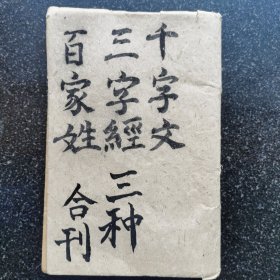 千字文
三字經 三种
百家姓 合刊